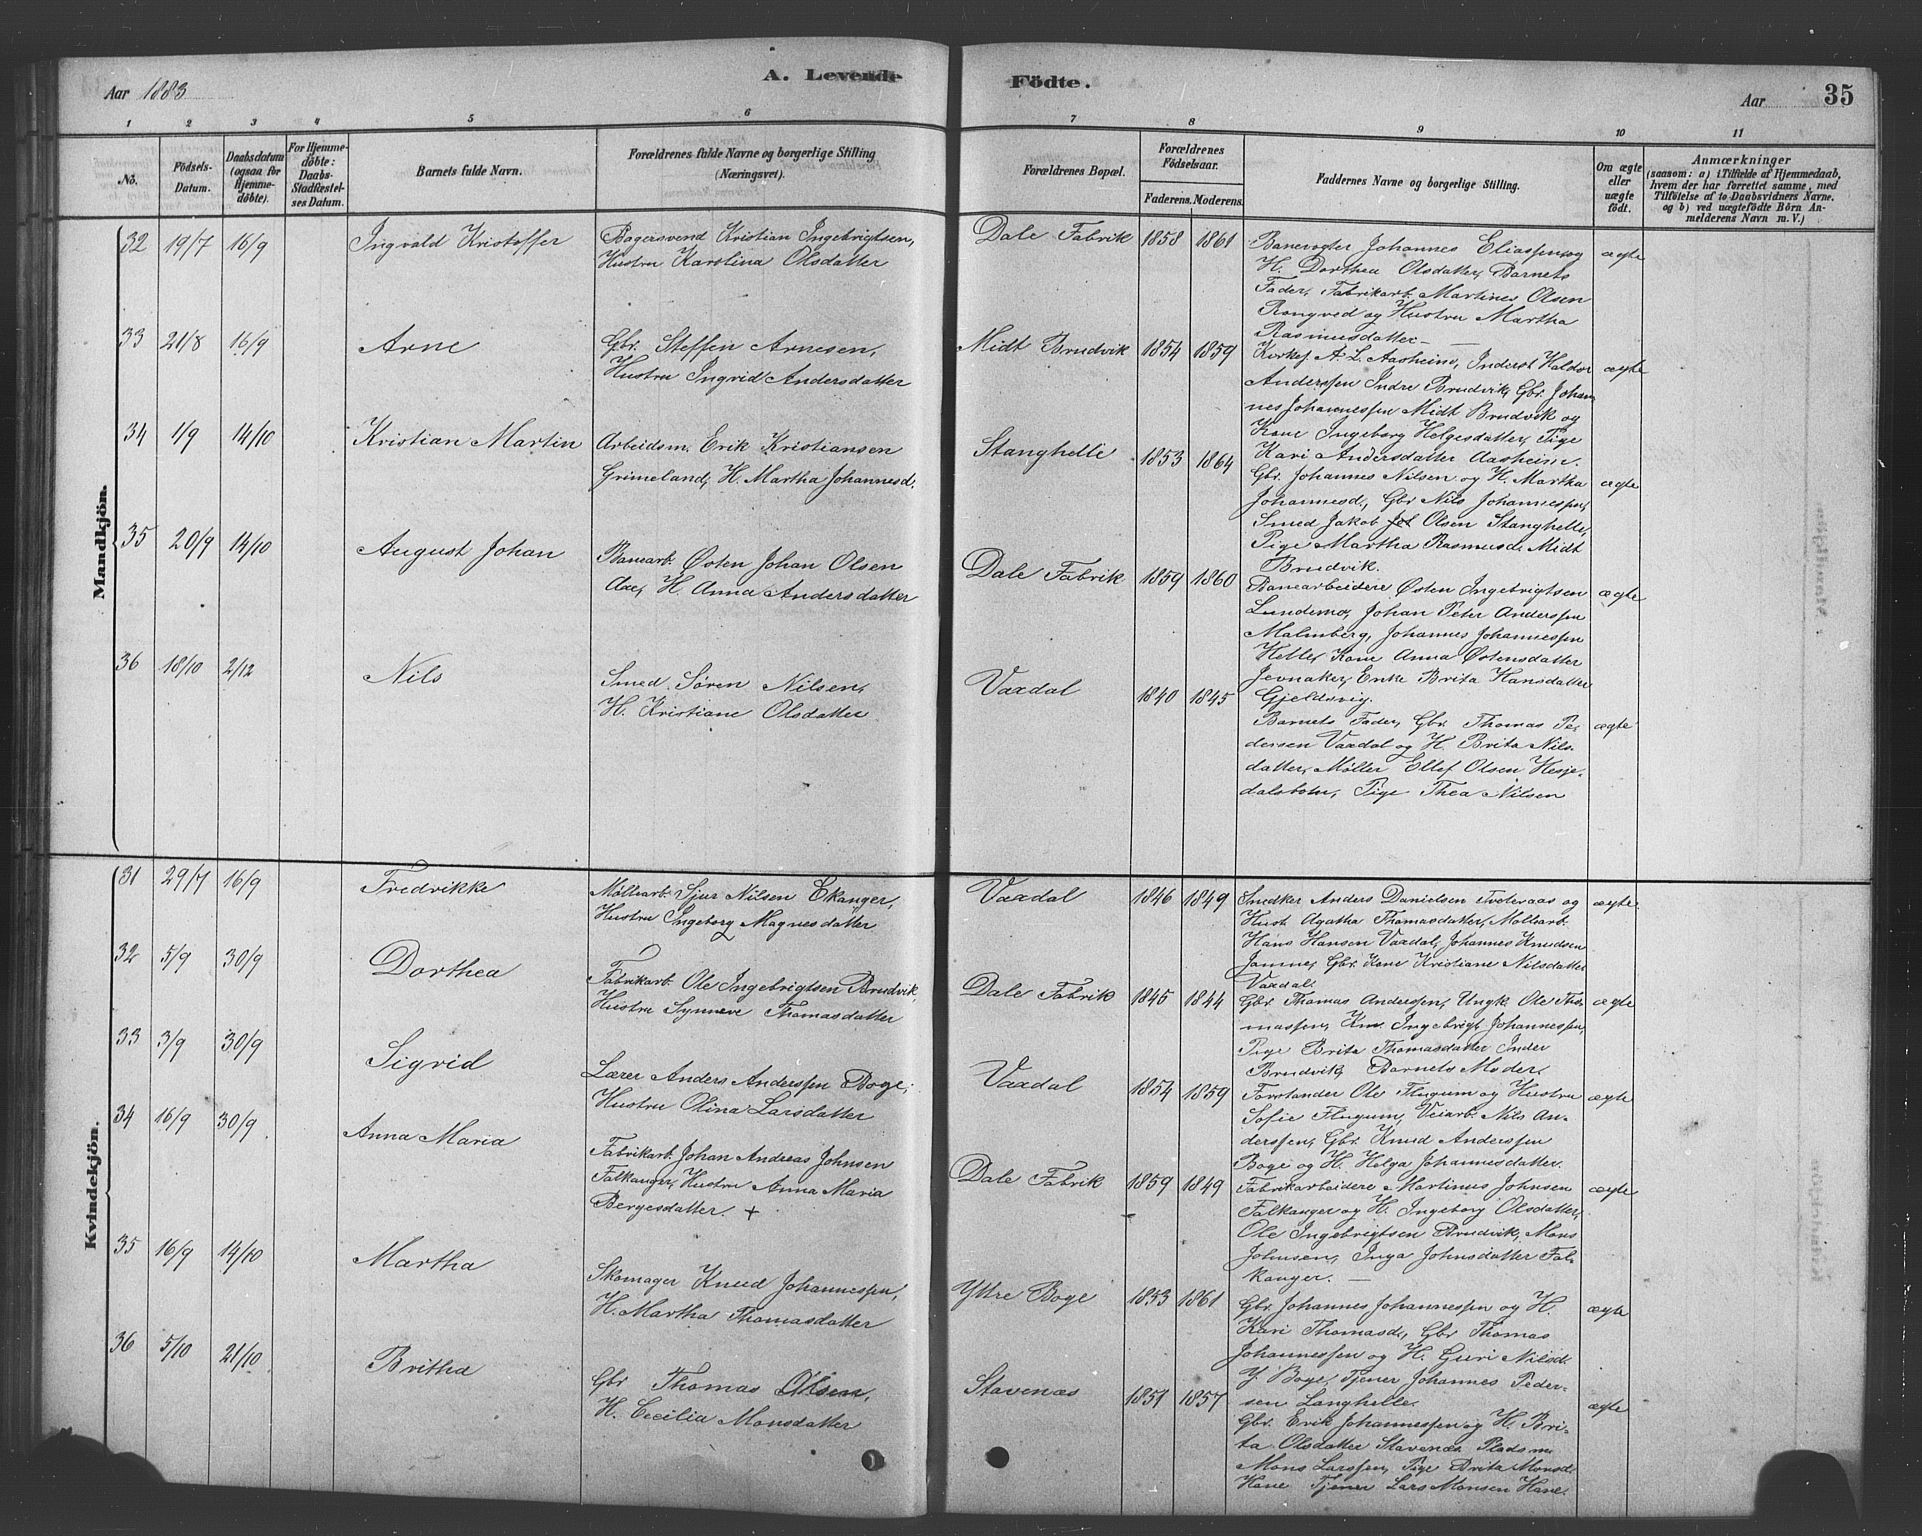 Aar 1883
A. Levende
Födte.
Aar
35
1 2 3 4 5 6 7 8 9 10 11
No.
Födsels-Datum.
Daabsdatum (ogsaa for Hjemmedöbte).
For Hjemmedöbte: Daabs-Stadfæstelses Datum.
Barnets fulde Navn.
Forældrenes fulde Navne og borgerlige Stilling (Næringsvei).
Forældrenes Bopæl.
Forældrenes Födselsaar.
Faderens. Moderens.
Faddernes Navne og borgerlige Stilling.
Om ægte eller uægte födt.
Anmærkninger
(saasom: a) i Tilfælde af Hjemmedaab,
hvem der har forrettet samme, med
Tilföielse af to Daabsvidners Navne.
og b) ved uægtefödte Börn An-
melderens Navn m. V.)
Mandkjön.
32 19/7 16/9 Ingvald Kristoffer
Bagersvend Kristian Ingebrigtsen,
Hustru Karolina Olsdatter
Dale Fabrik 1858 1861
Banevogter Johannes Eliassen og
H. Dorthea Olsdatter, Barnets
Fader, Fabrikarb. Martines Olsen
Rongved og Hustru Martha
Rasmusdatter —
ægte
33 21/8 16/9 Arne
Gbr. Steffen Arnesen,
Hustru Ingrid Andersdatter
Midt Brudvik 1854 1859
Kirkes. A. L. Aasheim, Inderst Haldor
Anderssen Indre Brudvik, Gbr. Johan
nes Johannessen Midt Brudvik og
Kone Ingeborg Helgesdatter, Pige
Kari Andersdatter Aasheim.
ægte
34 1/9 14/10 Kristian Martin
Arbeidsm. Erik Kristiansen
Grimeland, H. Martha Johannesd.
Stanghelle 1853 1864
Gbr. Johannes Nilsen og H. Martha
Johannesd., Gbr. Nils Johannessen,
Smed Jakob Olsen Stanghelle,
Pige Martha Rasmusd. Midt
Brudvik.
ægte
35 20/9 14/10 August Johan
Banearb. Østen Johan Olsen
Aae, H. Anna Andersdatter
Dale Fabrik 1859 1860
Banearbeidere Østen Ingebrigtsen
Lundemo, Johan Peter Anderssen
Malmberg, Johannes Johannessen
Helle, Kone Anna Østensdatter
Jevnaker, Enke Brita Hansdatter
Gjeldsvig.
ægte
36 18/10 2/12 Nils
Smed Søren Nilsen,
H. Kristiane Olsdatter
Vaxdal 1840 1845
Barnets Fader, Gbr. Thomas Pe-
dersen Vaxdal og H. Brita Nils-
datter, Møller Ellef Olsen Hesje-
dalsbotn, Pige Thea Nilsen
ægte
Kvindekjön.
31 29/7 16/9 Fredrikke
Møllearb. Sjur Nilsen Ekanger,
Hustru Ingeborg Magnesdatter
Vaxdal 1846 1849
Snedker Anders Danielsen Tveteraas og
Hust. Agatha Thomasdatter, Møllearb.
Hans Hansen Vaxdal, Johannes Knudsen
Jamne, Gbr. Kone Kristiane Nilsdatter
Vaxdal.
ægte
32 5/9 30/9 Dorthea
Fabrikarb. Ole Ingebrigtsen Brudvik,
Hustru Synneve Thomasdatter
Dale Fabrik 1845 1844
Gbr. Thomas Anderssen, Ungk. Ole Tho-
massen, Km. Ingebrigt Johannessen,
Pige Brita Thomasdatter Indre
Brudvik, Barnets Moder.
ægte
33 3/9 30/9 Sigrid
Lærer Anders Anderssen Boge,
Hustru Olina Larsdatter
Vaxdal 1854 1859
Forstander Ole Flugum og Hustru
Sofie Flugum, Veiarb. Nils An-
derssen, Gbr. Knud Anderssen
Boge og H. Helga Johannesdatter.
ægte
34 16/9 30/9 Anna Maria
Fabrikarb. Johan Andreas Johnsen
Falkanger, Hustru Anna Maria
Bergesdatter. +
Dale Fabrik 1859 1849
Fabrikarbeidere Martinus Johnsen
Falkanger og H. Ingeborg Olsdatter,
Ole Ingebrigtsen Brudvik, Mons
Johnsen, Inga Johnsdatter Fal-
kanger. —
ægte
35 16/9 14/10 Martha
Skomager Knud Johannessen,
H. Martha Thomasdatter
Yttre Boge 1853 1861
Gbr. Johannes Johannessen og H.
Kari Thomasd., Gbr. Thomas
Johannessen og H. Guri Nilsd.
Y. Boge, Tjener Johannes Peder-
sen Langhelle.
ægte
36 5/10 21/10 Britha
Gbr. Thomas Olsen,
H. Cecilia Monsdatter
Stavenæs 1851 1857
Gbr. Erik Johannessen og H. Bri-
ta Olsdatter Stavenæs, Pladsm.
Mons Larssen, Pige Brita Monsd.
Hane Tjener Lars Monsen Hane.
ægte